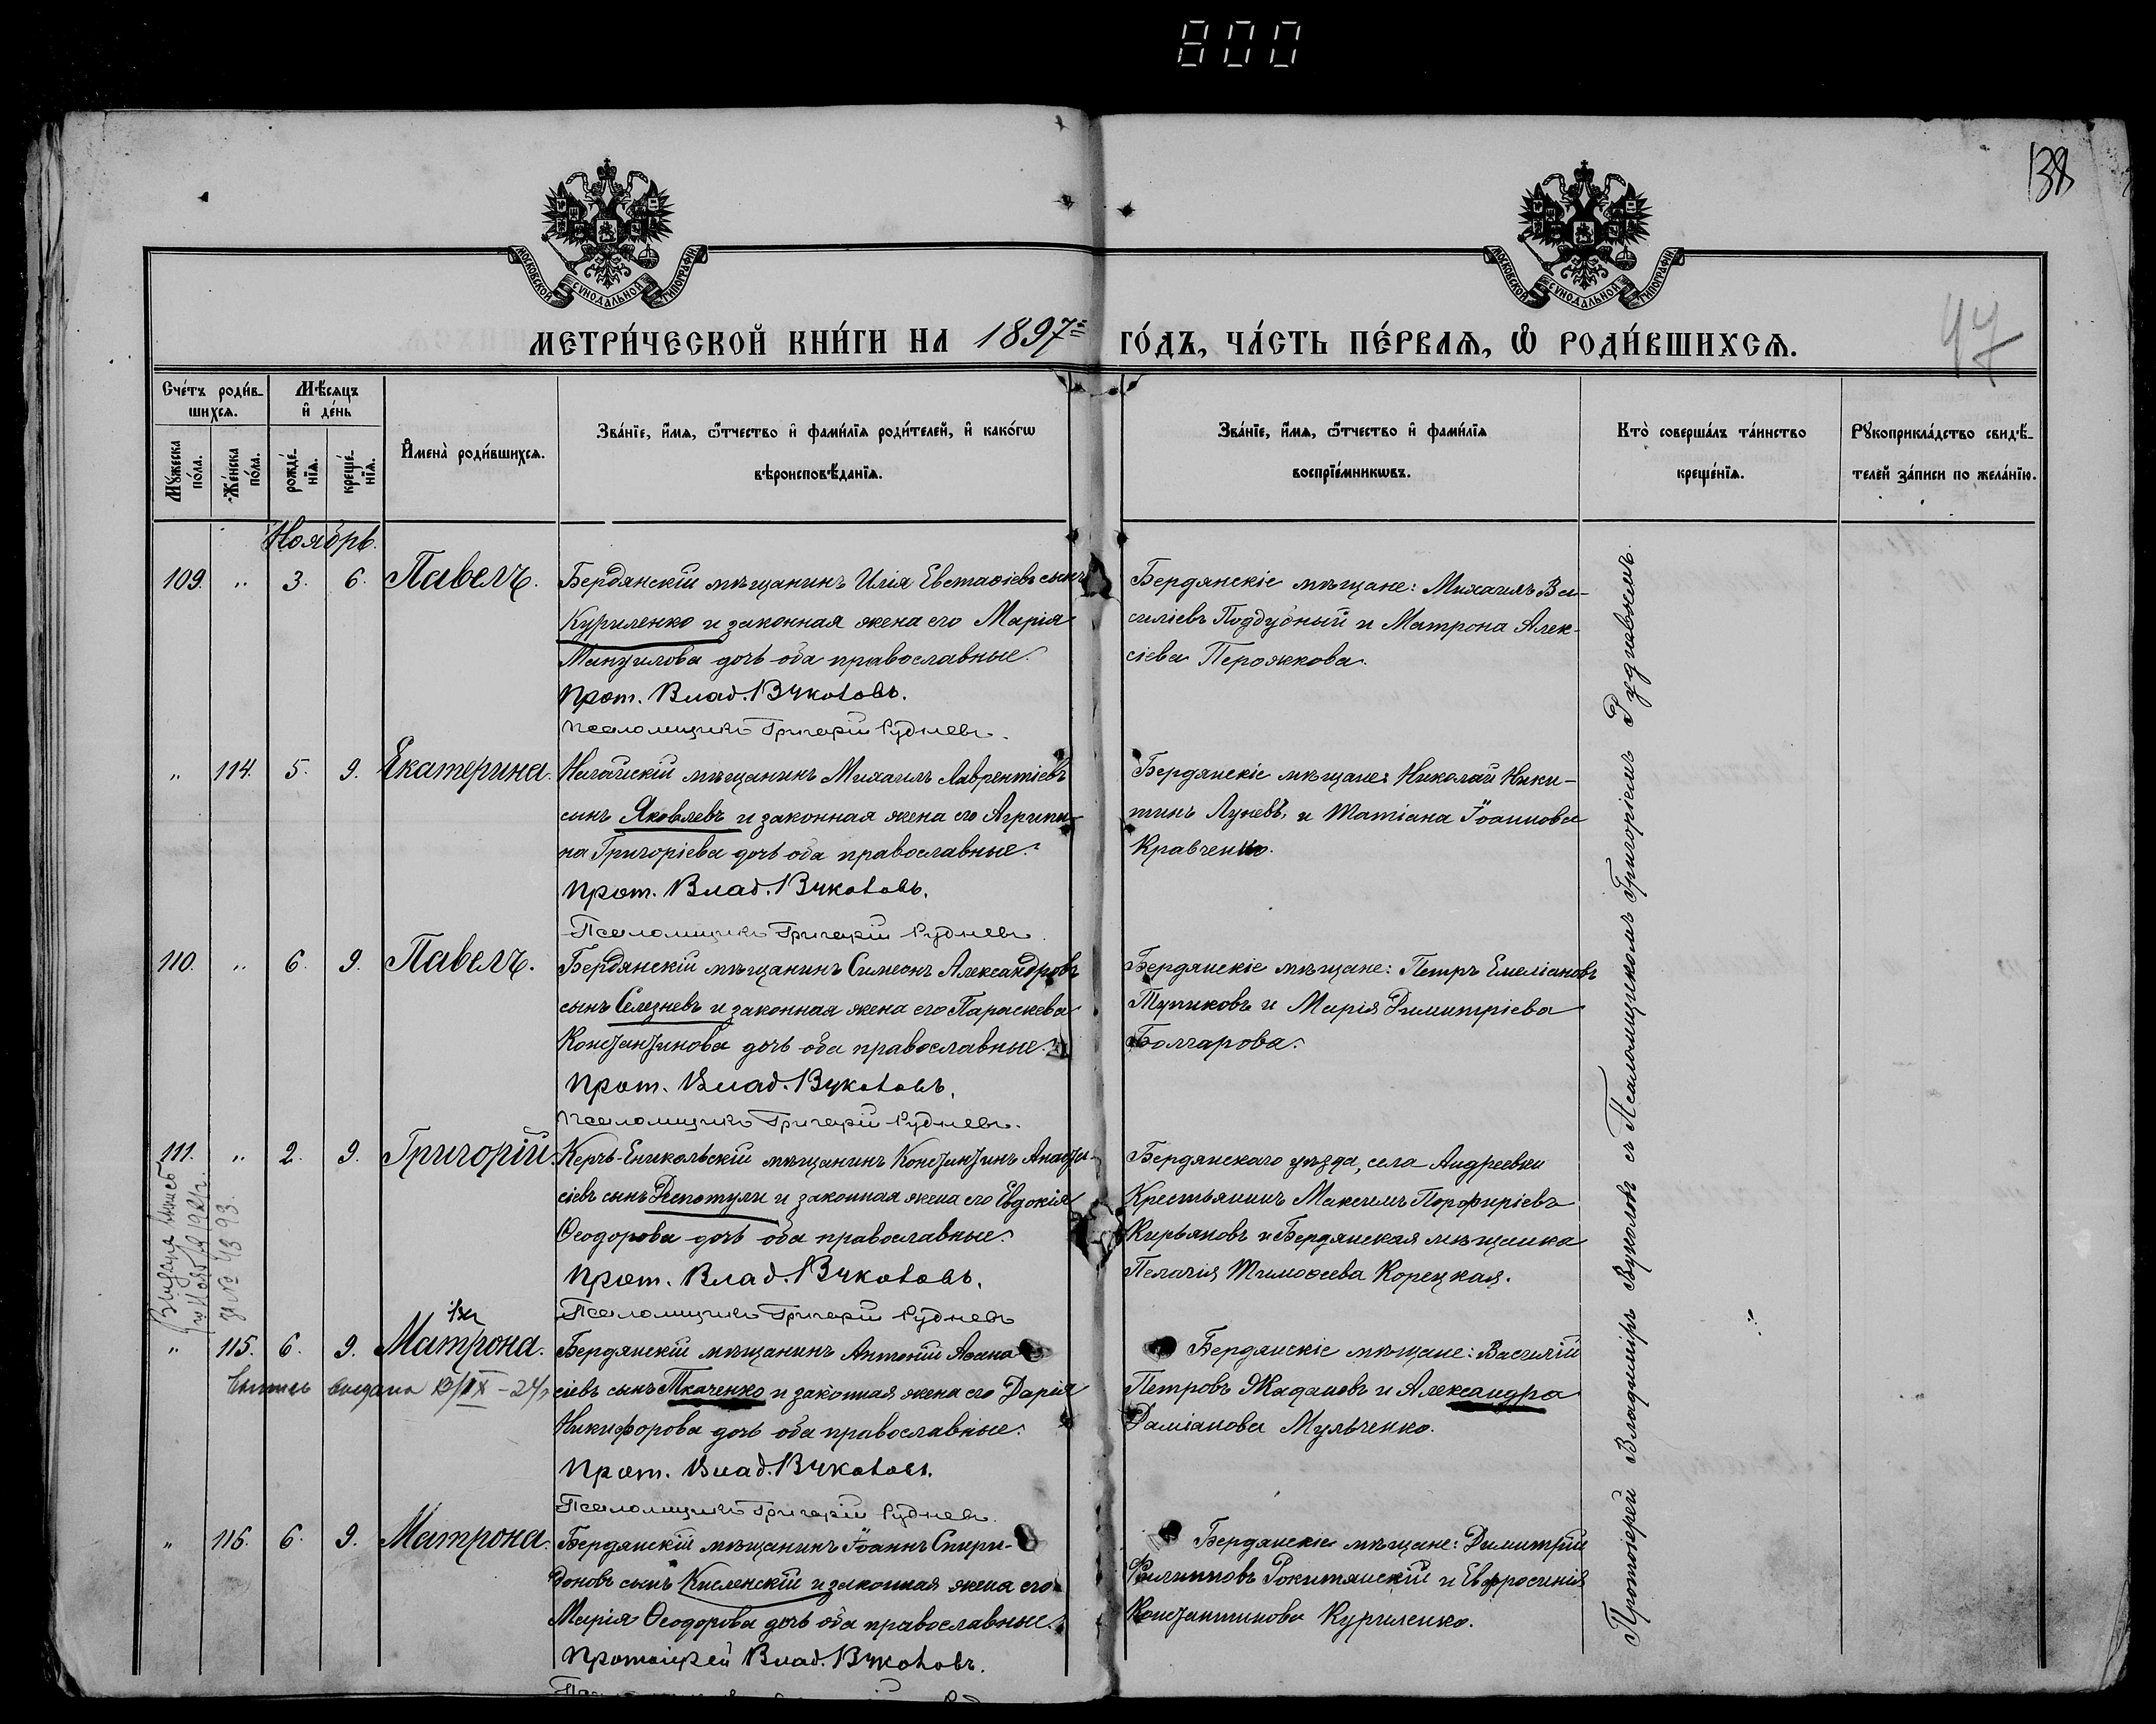 800
138
МОСКОВСКОЙ СѴНОДАЛЬНОЙ ТИПОГРАФІИ
МОСКОВСКОЙ СѴНОДАЛЬНОЙ ТИПОГРАФІИ
МЕТРИ́ЧЕСКОЙ КНИ́ГИ НА 1897 ГО́ДЪ, ЧА́СТЬ ПЕ́РВАѦ, Ѡ РОДИ́ВШИХСѦ.
47
Сче́тъ роди́в-
шихсѧ.
Мѣ́сѧцъ
и де́нь
Мꙋжеска по́ла.
Же́нска по́ла.
рожде́-
нїѧ.
креще́-
нїѧ.
И҆мена̀ роди́вшихсѧ.
Зва́нїе, и҆́мѧ, ѻ҆́тчество и҆ фами́лїѧ роди́телей, и҆ како́гѡ
вѣроисповѣ́данїѧ.
Зва́нїе, и҆́мѧ, ѻ҆́тчество и҆ фами́лїѧ
воспрїе́мникѡвъ.
Кто̀ соверша́лъ та́инство
креще́нїѧ.
Рꙋкоприкла́дство свидѣ́-
телей за́писи по жела́нїю.
Ноябрь.
109. „ 3. 6. Павелъ.
Бердянскій мѣщанинъ Илія Евстаѳіевъ сынъ
Куриленко и законная жена его Марія
Мануилова дочь оба православные.
Прот. Влад. Вуколовъ.
Псаломщикъ Григорій Рудневъ.
Бердянскіе мѣщане: Михаилъ Ва-
силіевъ Поддубный и Матрона Алек-
сіева Пероякова.
„ 114. 5. 9. Екатерина.
Ногайскій мѣщанинъ Михаилъ Лаврентіевъ
сынъ Яковлевъ и законная жена его Агрипи-
на Григоріева дочь оба православные.
Прот. Влад. Вуколовъ.
Псаломщикъ Григорій Рудневъ.
Бердянскіе мѣщане: Николай Ники-
тинъ Луневъ, и Татіана Іоаннова
Кравченко.
110. „ 6. 9. Павелъ.
Бердянскій мѣщанинъ Симеонъ Александровъ
сынъ Селезневъ и законная жена его Параскева
Константинова дочь оба православные.
Прот. Влад. Вуколовъ.
Псаломщикъ Григорій Рудневъ.
Бердянскіе мѣщане: Петръ Емеліановъ
Тупиковъ и Марія Димитріева
Болгарова.
111. „ 2. 9. Григорій.
Керчь-Еникольскій мѣщанинъ Константинъ Анаста-
сіевъ сынъ Репотули и законная жена его Евдокія
Ѳеодорова дочь оба православные.
Прот. Влад. Вуколовъ.
Псаломщикъ Григорій Рудневъ
Бердянскаго уѣзда, села Андреевки
Крестьянинъ Максимъ Порфиріевъ
Кирьяковъ и Бердянская мѣщанка
Пелагія Тимоѳеева Корецкая.
за № 4393.
„ 115. 6. 9. Матрона.
Бердянскій мѣщанинъ Антоній Аѳана
сіевъ сынъ Ткаченко и законная жена его Дарія
Никифорова дочь оба православные.
Прот. Влад. Вуколовъ.
Псаломщикъ Григорій Рудневъ.
Бердянскіе мѣщане: Василій
Петровъ Жадановъ и Александра
Даміанова Мульченко.
выпись выдана
„ 116. 6. 9. Матрона.
Бердянскій мѣщанинъ Іоаннъ Спири-
доновъ сынъ Кисленскій и законная жена его
Марія Ѳеодорова дочь оба православные.
Протоіерей Влад. Вуколовъ.
Бердянскіе мѣщане: Димитрій
Филипповъ Рокитянскій и Евфросинія
Константинова Куриленко.
Протоіерей Владиміръ Вуколовъ съ Псаломщикомъ Григоріемъ Рудневымъ.